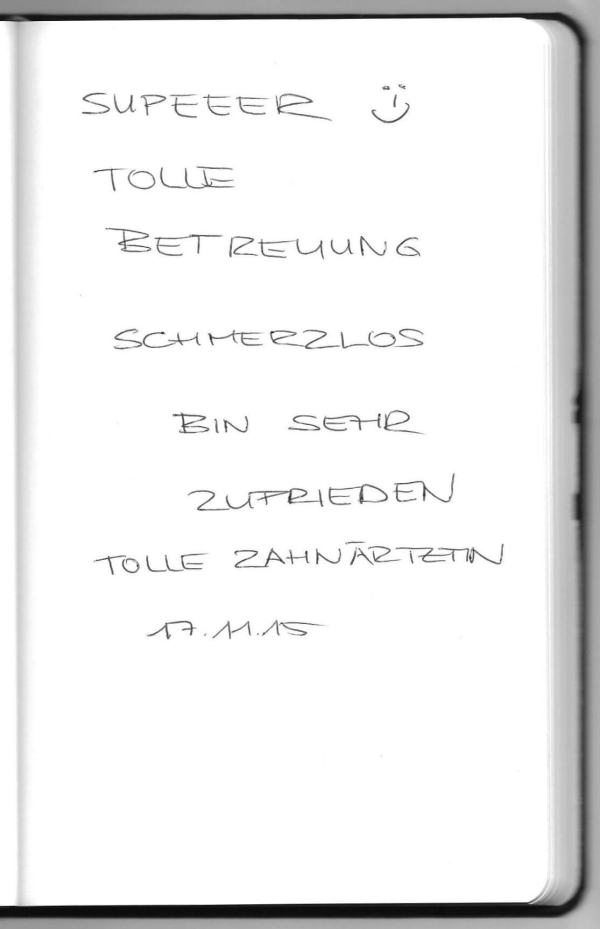 SUPEEER
TOLLE
BETREUUNG
SCHMERZLOS
BIN SEHR
ZUFRIEDEN
TOLLE ZAHNÄRTZTIN
17.11.15